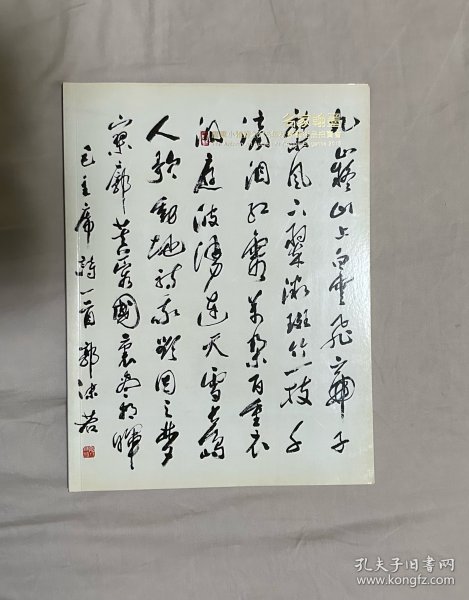 九嶷山上白雲飛帝子
乘風下翠微斑竹一枝千
滴淚紅霞萬朵百重衣
洞庭波湧連天雪長島
人歌動地詩我欲因之夢
寥廓芙蓉國裏盡朝暉
毛主席詩一首 郭沫若
孔夫子旧书网
www.kongfz.com